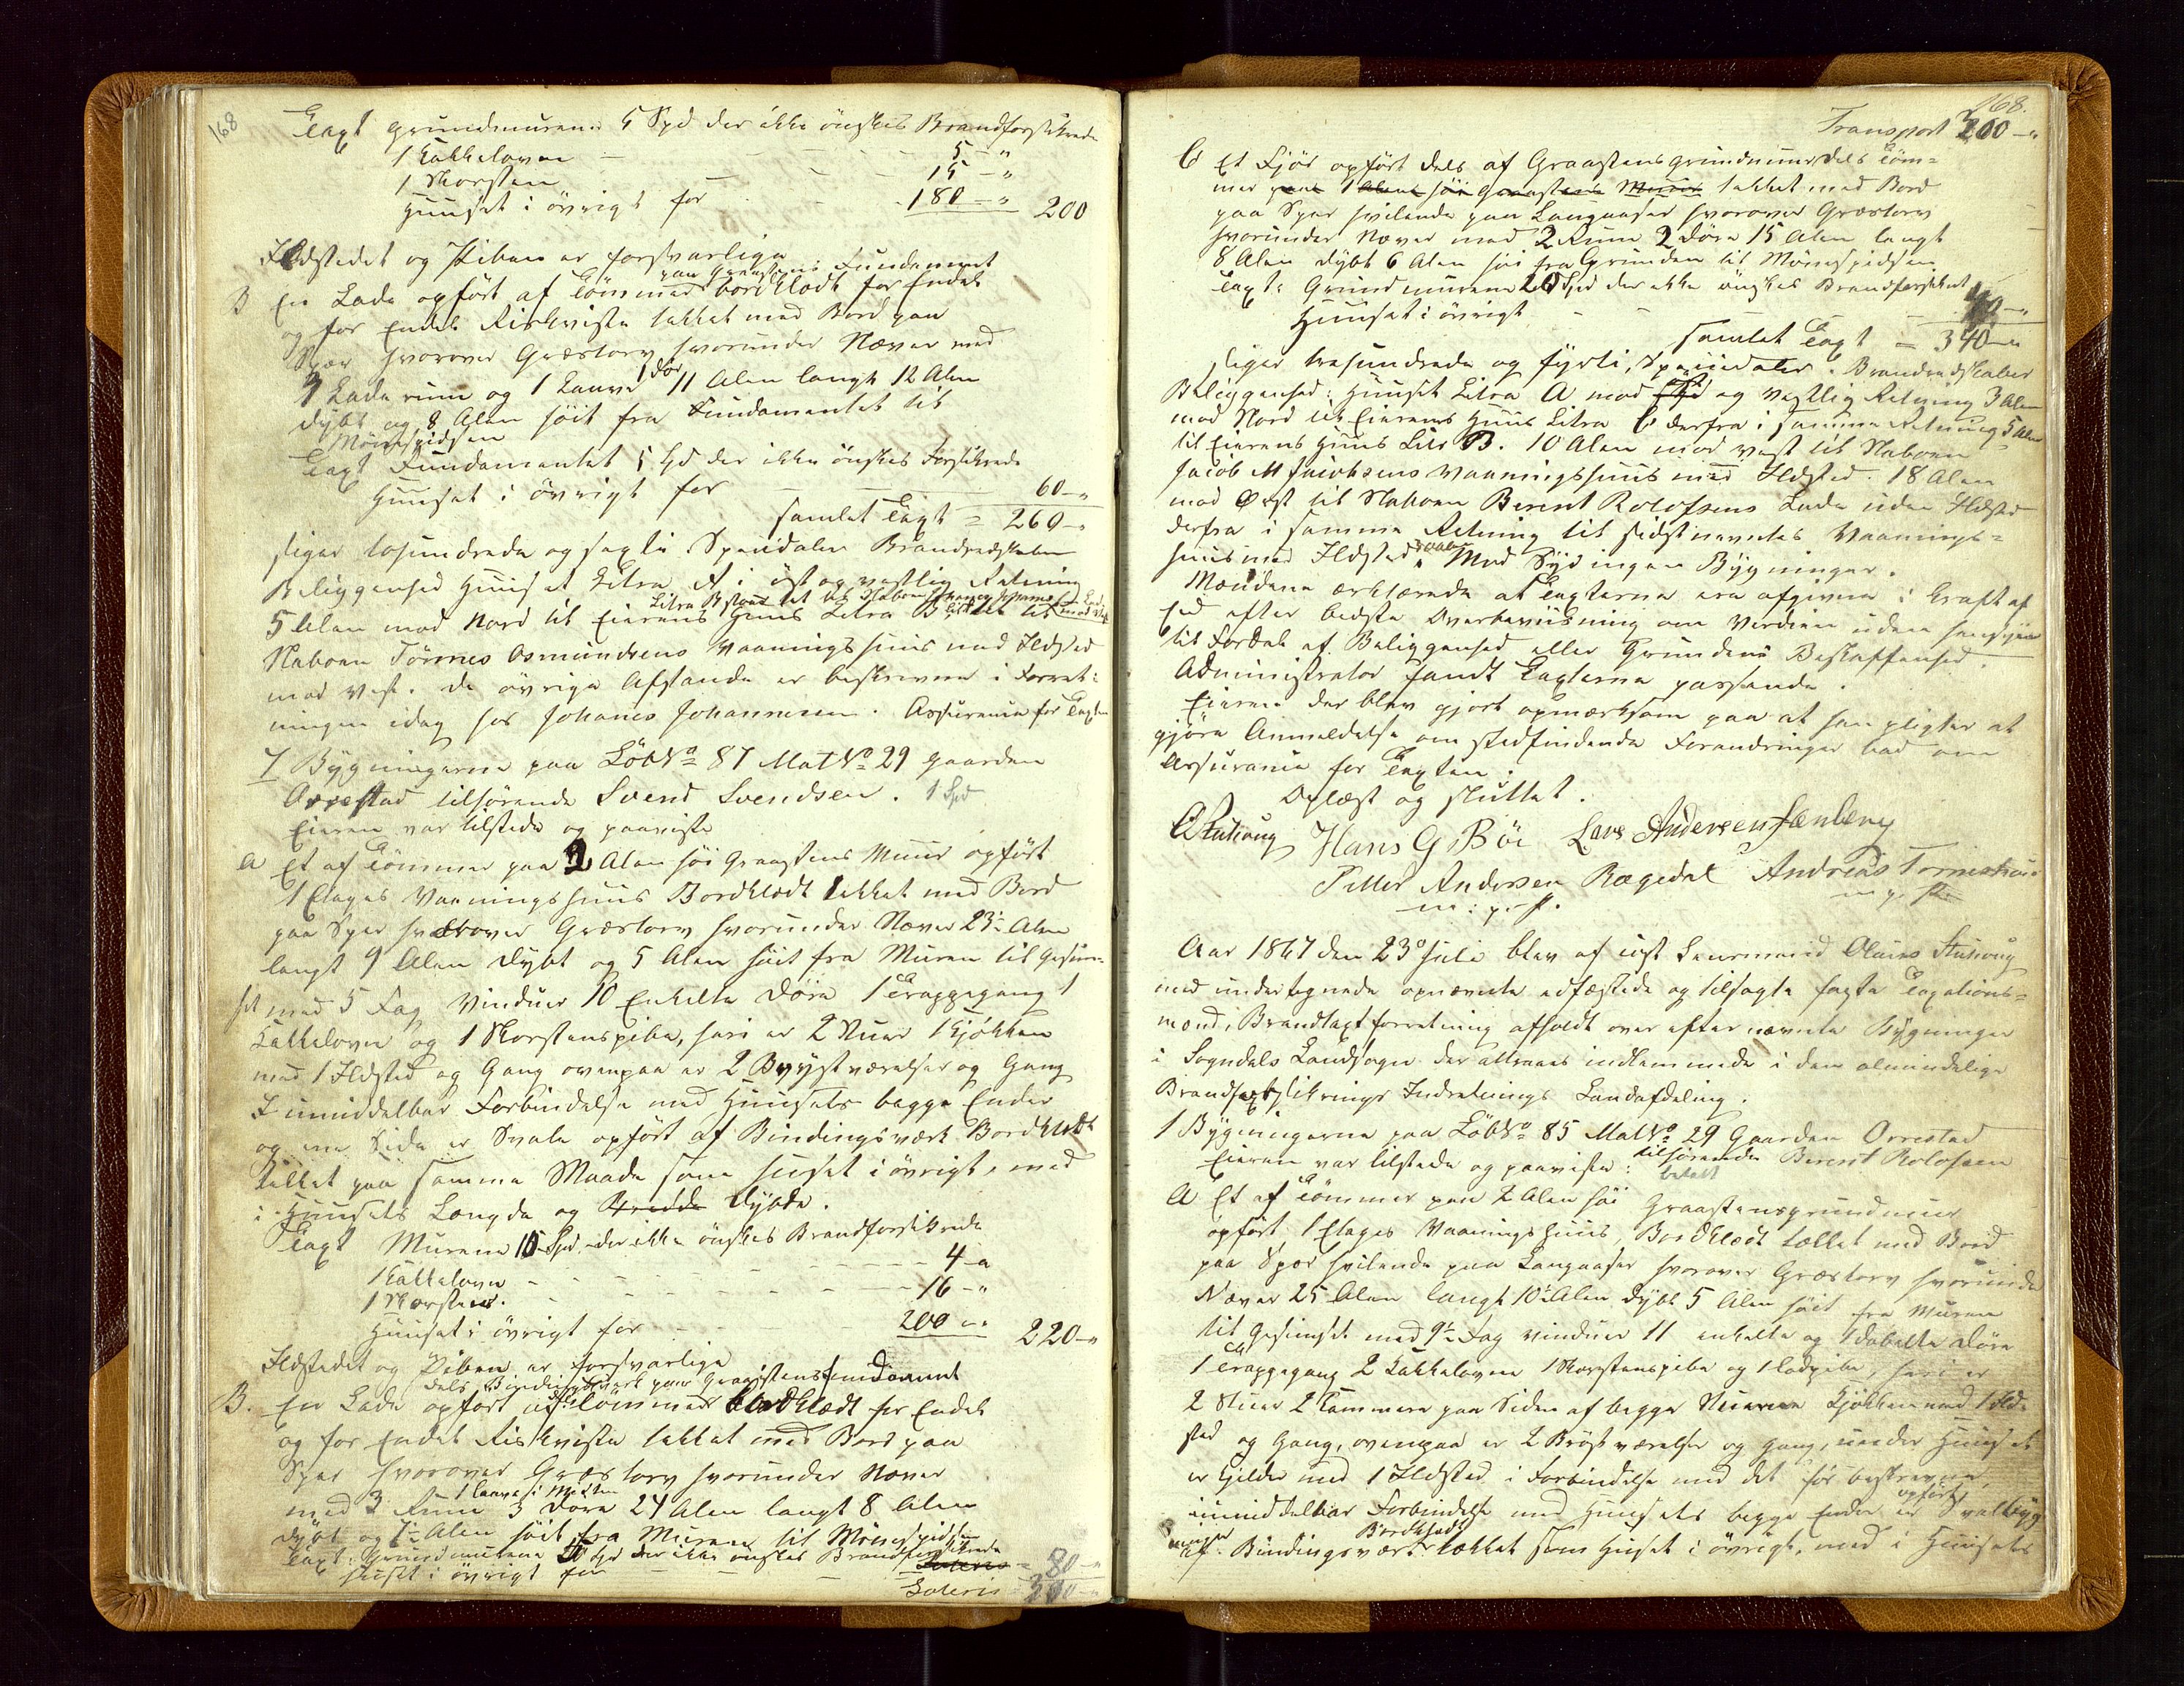 168
Taxt Grundmuren 5 Spd der ikke önskes Brandforsikrede
1 Kakkelovn - 5 - "
1 Skorsten - 15 - "
Huuset i övrigt for - 180 - " 200
Ildstedet og Piben er forsvarlige
paa Graasteens Fundament
B En Lade opfört af Tömmer bordklædt for Endel
og for Endel Riskviste tækket med Bord paa
Spær hvorover Græstorv hvorunder Næver med
1 Laderum og 1 Laave 1 dör 11 Alen langt 12 Alen
dybt og 8 Alen höit fra Fundamentet til
Mönespidsen
Taxt Fundamentet 5 Spd der ikke önskes Forsikrede
Huuset i övrigt for - 60 - "
samlet Taxt = 260 - "
siger tohundrede og sexti Speciedaler Brandredskaber
Beliggenhed Huuset Litra A i öst og vestlig Retning
5 Alen mod Nord til Eierens Huus Litra B
Naboen Tönnes Osmundsens Vaaningshuus med Ildsted
mod Vest. De övrige Afstande er beskrevne i Forret-
ningen idag hos Johanes Johannesen. Assurance for Taxten
7 Bygningerne paa LöbNo 87 MatNo 29 Gaarden
Orrestad tilhörende Svend Svendsen. 1 Spd
Eieren var tilstede og paaviste
A Et af Tömmer paa 2 Alen höi Graasteens Muur opfört
1 Etages Vaaningshuus Bordklædt tækket med Bord
paa Spær hvorover Græstorv hvorunder Næver 23½ Alen
langt 9 Alen dybt og 5 Alen höit fra Muren til Gesim-
set med 5 Fag Vinduer 10 Enkelte Döre 1 Trappegang 1
Kakkelovn og 1 Skorstenspibe, heri er 2 Stuer 1 Kjökken
med 1 Ildsted og Gang ovenpaa er 2 Brystværelser og Gang
I umiddelbar Forbindelse med Huusets begge Ender
og ene Side er Svale opfört af Bindingsværk Bordklædt
tækket paa samme Maade som Huset i övrigt, med
i Huusets Længde og Bredde Dybde.
Taxt Murene 10 Spd der ikke önskes Brandforsikrede
1 Kakkelovn - 4 - "
1 Skorsten - 16 - "
Huuset i övrigt for - 200 - " 220 - "
Ildstedet og Piben er forsvarlige
dels Bindingsværk paa Graasteensfundament
B. En Lade opfört af Tömmer bordklædt for Endel
og for Endel Riskviste tækket med Bord paa
Spær hvorover Græstorv hvorunder Næver
1 Laave i Midten
med 3 Rum 3 Döre 24 Alen langt 8 Alen
dybt og 7½ Alen höit fra Muren til Mönespidsen
Taxt: Grundmurene 20 Spd der ikke önskes Brandforsikrede
Huset i övrigt for - 80 - "
Lateris 300 - "
168.
Transport 300 - "
C Et Fjös opfört dels af Graasteensgrundmuur dels Töm-
mer paa 1 Alens höi Graasteens Muur tækket med Bord
paa Spær hvilende paa Langaaser hvorover Græstorv
hvorunder Næver med 2 Rum 2 Döre 15 Alen langt
8 Alen dybt 6 Alen höi fra Grunden til Mönespidsen
Taxt: Grundmurene 20 Spd der ikke önskes Brandforsikret
Huuset i övrigt - 40 - "
samlet Taxt = 340 - "
siger trehundrede og fyrti, Speciedaler. Brandredskaber
Beliggenhed: Huuset Litra A mod og vestlig Retning 3 Alen
mod Nord til Eierens Huus Litra C derfra i samme Retning 5 Alen
til Eierens Huus Litr B. 10 Alen mod vest til Naboen
Jacob M Jacobsens Vaaningshuus med Ildsted. 18 Alen
mod Öst til Naboen Berent Rolofsens Lade uden Ildsted
derfra i samme Retning til sidstnævntes Vaanings-
huus med Ildsted. Mod Syd ingen Bygninger.
Mændene erklærede at Taxterne ere afgivne i Kraft af
Eed efter bedste Overbeviisning om Værdien uden Hensyn
til Fordel af Beliggenhed eller Grundens Beskaffenhed.
Administrator fandt Taxterne passende.
Eieren der blev gjort opmærksom paa at han pligter at
gjöre Anmeldelse om stedfindende Forandringer bad om
Assurance for Taxten.
Oplæst og sluttet.
O Stuhoug Hans G Böe Lars Andersen Lænberg
Peter Andersen Rægedal Andreas Tornes
m: p. P. m. p. P.
Aar 1867 den 23de Juli blev af cst Lensmand Olaves Stuhoug
med undertegnede opnævnte edfæstede og tilsagte faste Taxations-
mænd, Brandtaxtforretning afholdt over efternævnte Bygninger
i Sogndals Landsogn der attraaes indlemmede i den almindelige
Brandforsikrings Indretnings Landafdeling.
1 Bygningerne paa LöbNo 85 MatNo 29 Gaarden Orrestad
Eieren var tilstede og paaviste: tilhörende Berent Rolofsen
betalt
A Et af Tömmer paa 2 Alen höi Graasteensgrundmuur
opfört 1 Etages Vaaningshuus, Bordklædt tækket med Bord
paa Spær hvilende paa Langaaser hvorover Græstorv hvorunder
Næver 25 Alen langt 10½ Alen dybt 5 Alen höit fra Muren
til Gesimset med 9½ Fag Vinduer 11 enkelte og 1 dobelte Döre
1 Trappegang 2 Kakkelovne 1 Skorstenspibe og 1 Ladpibe, heri er
2 Stuer 2 Kammere paa Siden af begge Stuerne Kjökken med 1 Ild-
sted og Gang, ovenpaa er 2 Brystværelser og Gang, under Huuset
er Kjelder med 1 Ildsted i Forbindelse med det för beskrevne,
umiddelbar Forbindelse med Huusets begge Ender er opfört Svalbyg-
ninger af Bindingsværk Bordklædt tækket som Huset i övrigt, med i Huusets